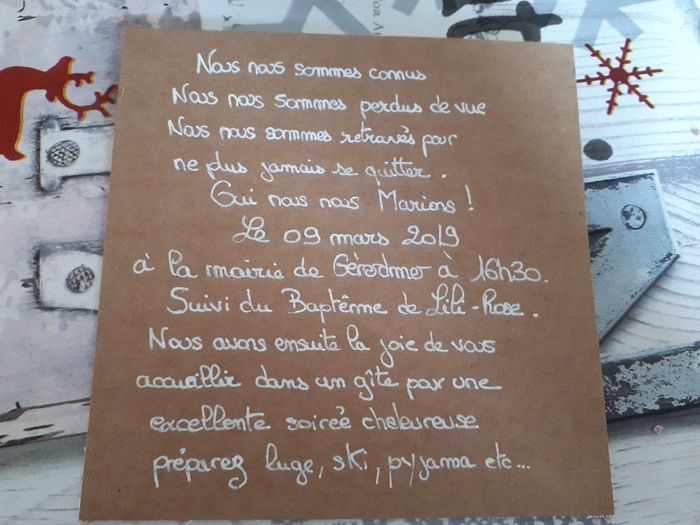 Nous nous sommes connus
Nous nous sommes perdus de vue
Nous nous sommes retrouvés pour
ne plus jamais se quitter.
Oui nous nous Marions !
Le 09 mars 2019
à la mairie de Gérardmer à 16h30.
Suivi du Baptême de Lili-Rose.
Nous avons ensuite la joie de vous
accueillir dans un gîte pour une
excellente soireé chaleureuse
préparez luge, ski, pyjama etc...